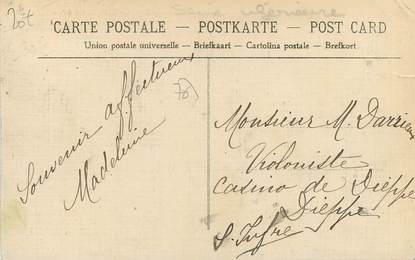 Seine inférieure
CARTE POSTALE — POSTKARTE — POST CARD
Union postale universelle — Briefkaart — Cartolina postale — Brefkort
Souvenir affectueux
Madeleine
Monsieur M. Darrieux
Violoniste
Casino de Dieppe
Dieppe
S. Infre